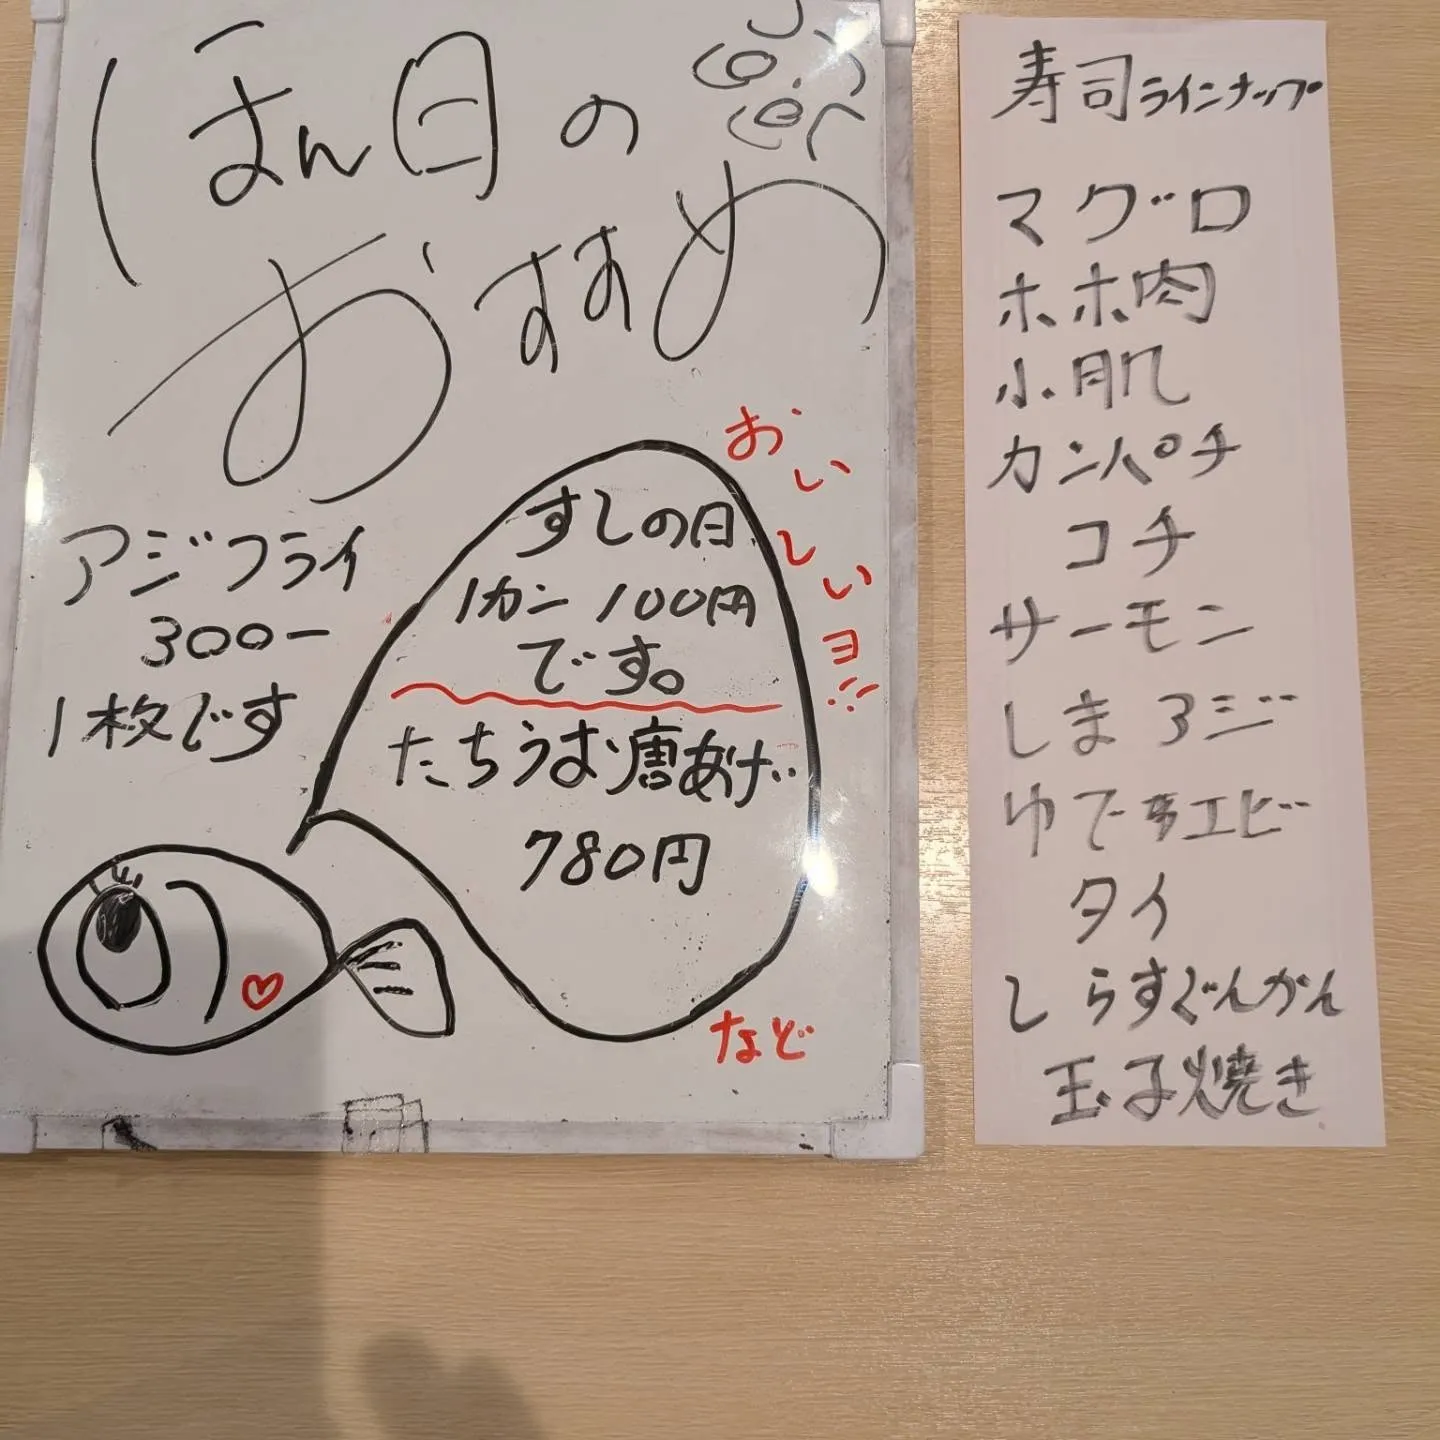 ほん日の
おすすめ
アジフライ
300ー
1枚です
すしの日
1カン 100円
です。
たちうお唐あげ
780円
おいしいヨ!!
など
寿司ラインナップ
マグロ
ホホ肉
小肌
カンパチ
コチ
サーモン
しまアジ
ゆでエビ
タイ
しらすぐんかん
玉子焼き